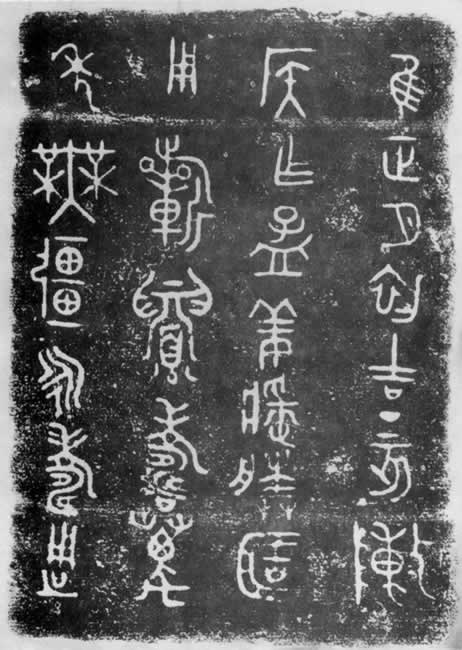 隹正月初吉丁亥陳
侯乍孟姜
用祈眉壽萬
年無疆永壽用之